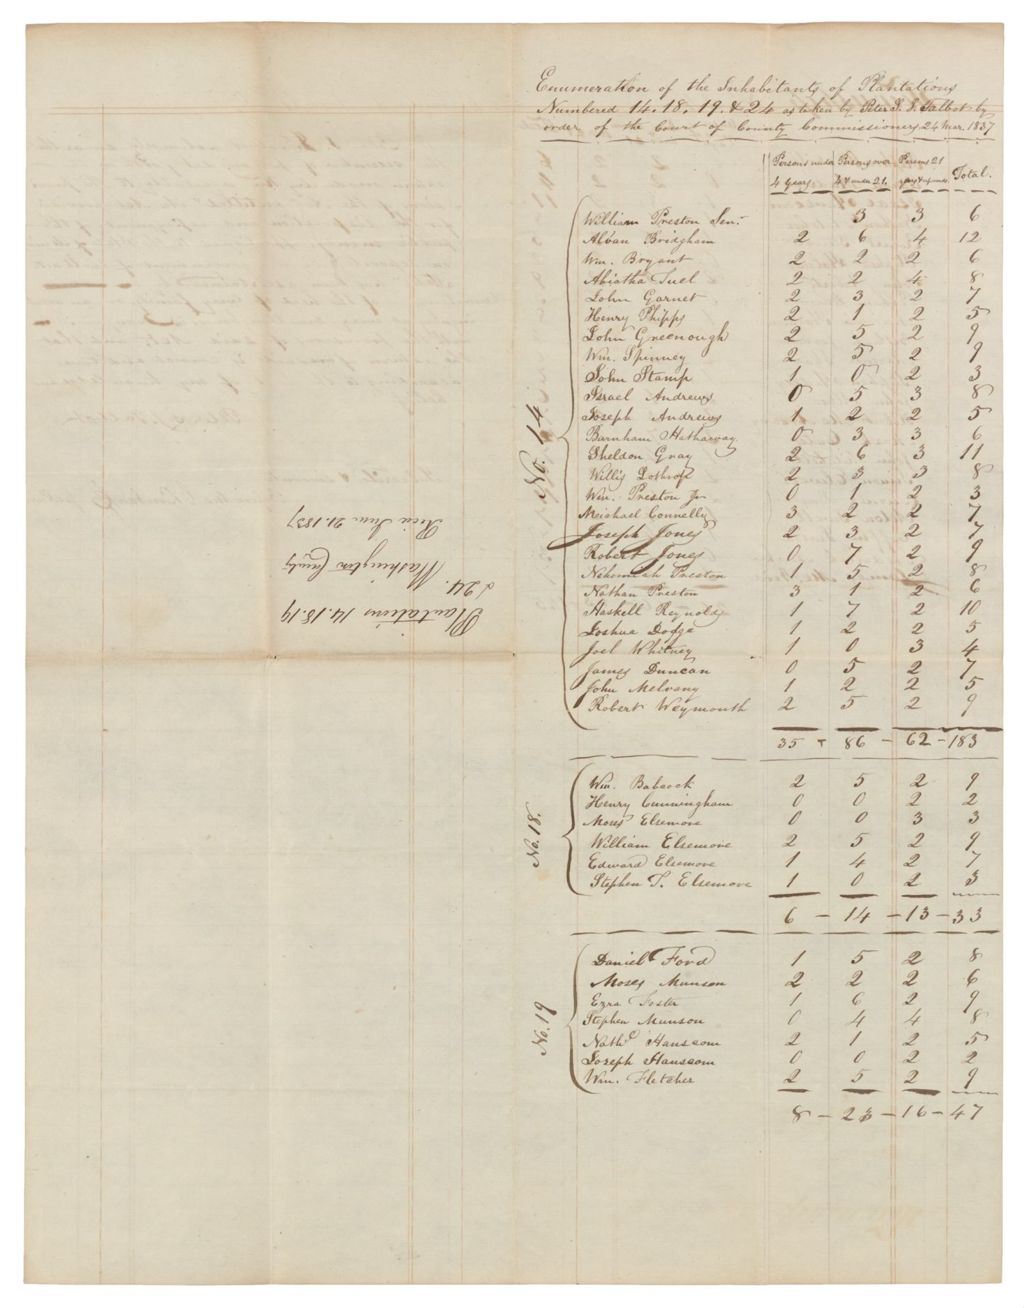 Enumeration of the Inhabitants of Plantations
Numbered 14, 18, 19, & 24 as taken by Peter S. J. Talbot by
order of the Court of County Commissioners 24 Mar. 1837
Persons under 4 years Persons over 4 & under 21. Persons 21 years & upwards. Total.
No. 14
William Preston Senr. 3 3 6
Alvan Bridgham 2 6 4 12
Wm. Bryant 2 2 2 6
Abiatha Tuel 2 2 4 8
John Garnet 2 3 2 7
Henry Phipps 2 1 2 5
John Greenough 2 5 2 9
Wm. Spinney 2 5 2 9
John Stamp 1 0 2 3
Israel Andrews 0 5 3 8
Joseph Andrews 1 2 2 5
Burnham Hathaway 0 3 3 6
Sheldon Gray 2 6 3 11
Willis Lothrop 2 3 3 8
Wm. Preston Jr 0 1 2 3
Meichael Connelly 3 2 2 7
Joseph Jones 2 3 2 7
Robert Jones 0 7 2 9
Nehemiah Preston 1 5 2 8
Nathan Preston 3 1 2 6
Haskell Reynolds 1 7 2 10
Joshua Dodge 1 2 2 5
Joel Whitney 1 0 3 4
James Duncan 0 5 2 7
John Melvany 1 2 2 5
Robert Weymouth 2 5 2 9
35 - 86 - 62 - 183
No. 18.
Wm. Babcock 2 5 2 9
Henry Cunningham 0 0 2 2
Moses Elsemore 0 0 3 3
William Elsemore 2 5 2 9
Edward Elsemore 1 4 2 7
Stephen T. Elsemore 1 0 2 3
6 - 14 - 13 - 33
No. 19
Daniel Ford 1 5 2 8
Moses Munson 2 2 2 6
Ezra Foster 1 6 2 9
Stephen Munson 0 4 4 8
Nathl Hanscom 2 1 2 5
Joseph Hanscom 0 0 2 2
Wm. Fletcher 2 5 2 9
8 - 23 - 16 - 47
Plantations 14. 18. 19
& 24. Washington County
21. 1837